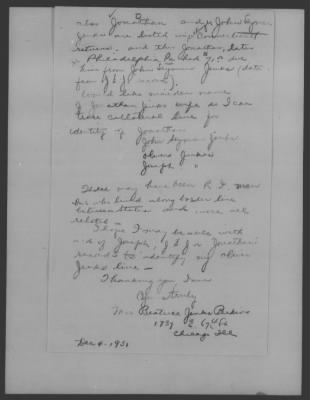 also Jonathan and John Seymor
Jenks are listed in Connecticut
returns. and this Jonathan, later
Philadelphia Pa
him from John Seymour Jenks (data
from J S J
Would like maiden name
of Jonathan Jenks wife so I can
trace collateral line for
identity of Jonathan
John Seymor Jenks
Oliver Jenks
Joseph "
These may have been R. I. men
but who lived along border line
between states and were all
related —
I hope I may be able with
aid of Joseph, J S J or Jonathan's
records to identify my Oliver
Jenks line —
Thanking you I am
Yrs truly
Mrs Beatrice Jenks
1739 E 67th St
Chicago Ill
Dec 4 - 1931